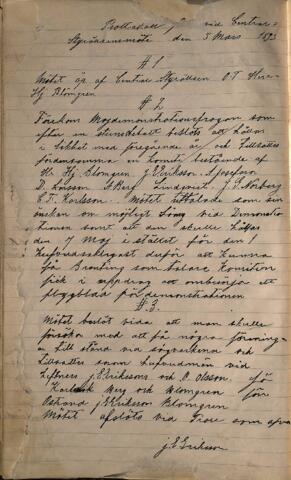 Protokoll vid Central-
Styrelsemöte den 5 Mars 1893
§ 1
Mötet öp. af Central Styrelsen O.F. Herr
Hj Blomgren
§ 2
Förekom Majdemonstrationsfrågan som
efter en stunds debatt beslöts att hållas
i likhet med föregående år och tillsattes
för densamma en komité bestående af
Hr Hj. Blomgren J Eriksson A Josefson
D. Larsson A Berf Lindqvist J. P. Norberg
C. F. Karlsson. Mötet uttalade som sin
önskan om möjligt Sång vid Demonstra
tionen samt att den skulle hållas
den 7 Maj i stället för den 1
hufvudsakligast derför att kunna
få Branting som talare Komitéen
fick i uppdrag att ombesörja ett
flygblad för demonstrationen
§ 3.
Mötet beslöt vidare att man skulle
försöka med att få några förening-
ar till stånd vid sågverkena och
tillsattes som hufvudmän vid
J. E. Eriksson och O. Olsson. för
Berg och Blomgren för
Ostrand J E Eriksson Blomgren
Mötet afslöts vid
J. E. Eriksson